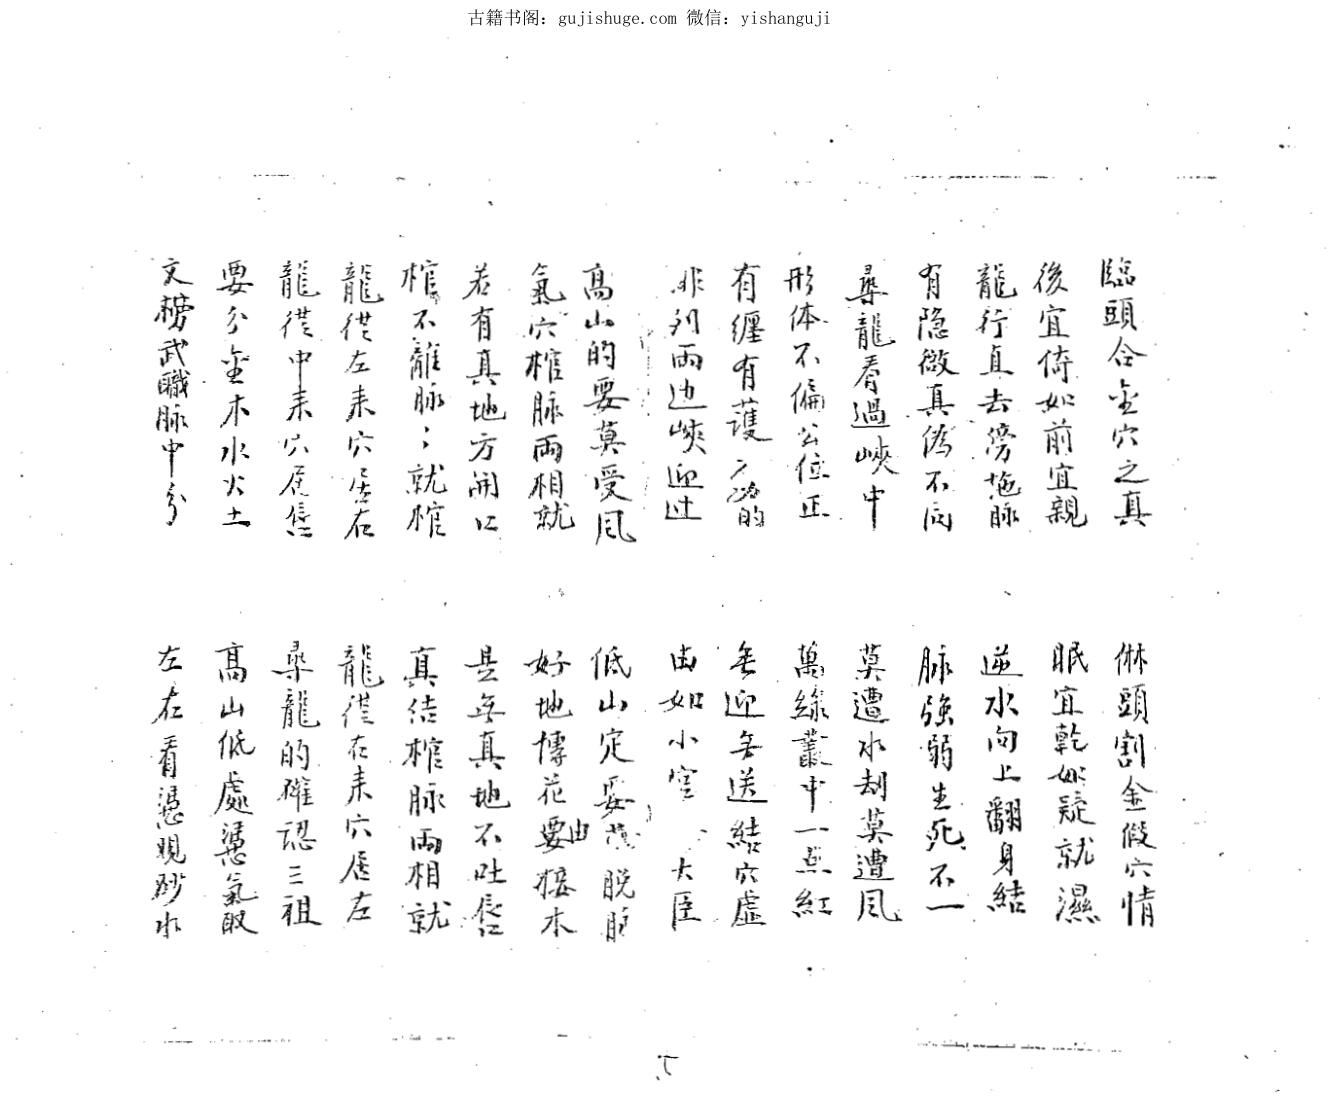 古籍书阁：gujishuge.com 微信：yishanguji
臨頭合金穴之真
後宜倚如前宜親
龍行直去傍拖脉
有隐微真偽不同
尋龍看過峽中
形体不偏公位正
有纏有護方為的
排列兩边峽迎过
高山的要莫受风
氣穴棺脉兩相就
若有真地方開口
棺不離脉；就棺
龍從左来穴居右
龍從中来穴居
要分金木水火土
文榜武職脉中分
淋頭割金假穴情
眠宜乾如疑就濕
逆水向上翻身結
脉強弱生死不一
莫遭水刼莫遭风
萬綠叢中一点紅
無迎無送結穴虛
由如小 大臣
低山定要 脱脉
好地博花要由接木
是無真地不吐唇
真结棺脉兩相就
龍從右来穴居左
尋龍的確認三祖
高山低處憑氣取
左右看憑观砂水
5.